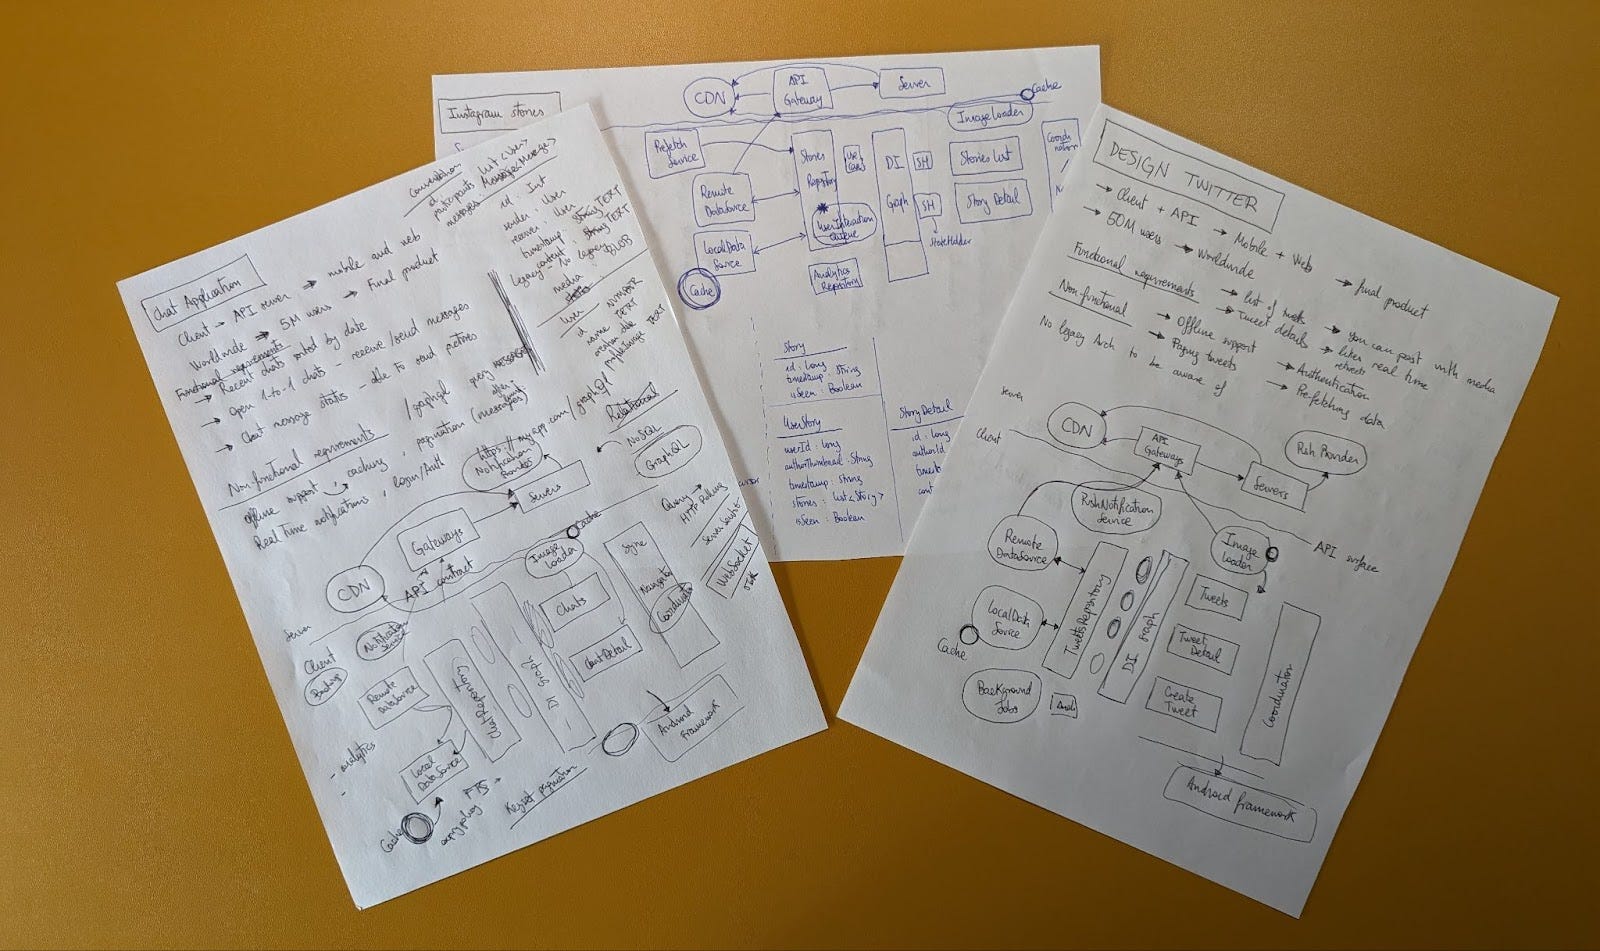 Chat Application
Client → API server → mobile and web
Worldwide → 5M users → Final product
Functional requirements
→ Recent chats sorted by date
→ Open 1-to-1 chats - receive/send messages
→ Chat message status - able to send pictures
Non-functional requirements
offline support, caching, pagination (messages)
Real Time notifications, login/Auth
/graphql query
https://myapp.com/graphql
Conversation
id
participants List<User>
messages
id: Int
sender: User
receiver: User
timestamp: String TEXT
content: String TEXT
Legacy - No legacy
media: BLOB
User
id NUMBER
name TEXT
creation date
profileImage TEXT
Relational
NoSQL
GraphQL
Notification Provider
Servers
Gateways
CDN
API contract
Server
Client
Backup
Notification Service
Remote DataSource
Chat Repository
DI Graph
Image Loader
Cache
Chats
Chat Detail
Sync
Navigator
Coordinator
Query →
HTTP Polling
Server Sent E
WebSocket
- analytics
-
Local DataSource
Cache
FTS
expiry policy
Keyset pagination
Android Framework
Instagram stories
CDN
API Gateway
Server
Cache
ImageLoader
Prefetch Service
Remote DataSource
Local Data Source
Cache
Stories Repository
Use Cases
UserInteraction Queue
Analytics Repository
DI Graph
SH
SH
StateHolder
Stories List
Story Detail
Story
id: Long
timestamp: String
isSeen: Boolean
UserStory
userId: Long
authorThumbnail: String
timestamp: String
stories: List<Story>
isSeen: Boolean
Story Detail
id: Long
DESIGN TWITTER
→ Client + API → Mobile + Web → final product
→ 50M users → Worldwide
Functional requirements → list of tweets → you can post with media
→ Tweet details → likes retweets real time
Non-functional → Offline support → Authentication
→ Paging tweets → Prefetching data
No legacy Arch to be aware of
Server
Client
CDN
API Gateways
Servers
Push Provider
PushNotification Service
Remote DataSource
Image Loader
API surface
Local Data Source
Cache
TweetsRepository
DI graph
Tweets
Tweet Detail
Create Tweet
Coordinator
Background Jobs
Android framework